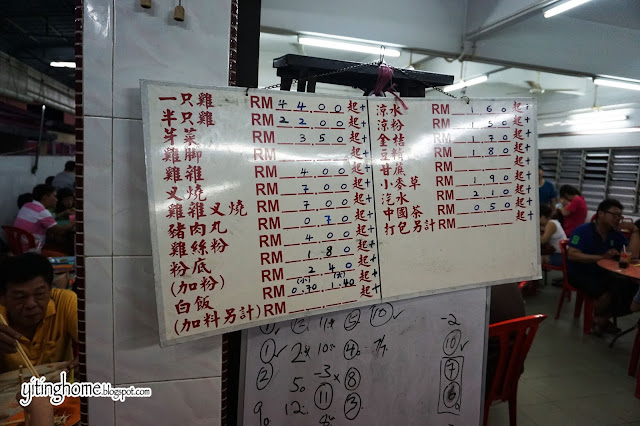 一只雞 RM 4400 起+
半只雞 RM 2200 起+
芽菜 RM 350 起+
雞腳 RM 起+
雞雜 RM 400 起+
叉燒 RM 700 起+
雞雜叉燒 RM 700 起+
豬肉丸 RM 070 起+
雞絲粉 RM 400 起+
粉底 RM 180 起+
(加粉) RM 240 起+
(小) (大)
白飯 RM 0.70 1.40 起+
(加料另計) RM
涼水 RM 160 起+
涼粉 RM 150 起+
金桔 RM 170 起+
豆 RM 180 起+
甘蔗 RM 起+
小麥草 RM 190 起+
汽水 RM 210 起+
中國茶 RM 050 起+
打包另計
yitinghome.blogspot.com